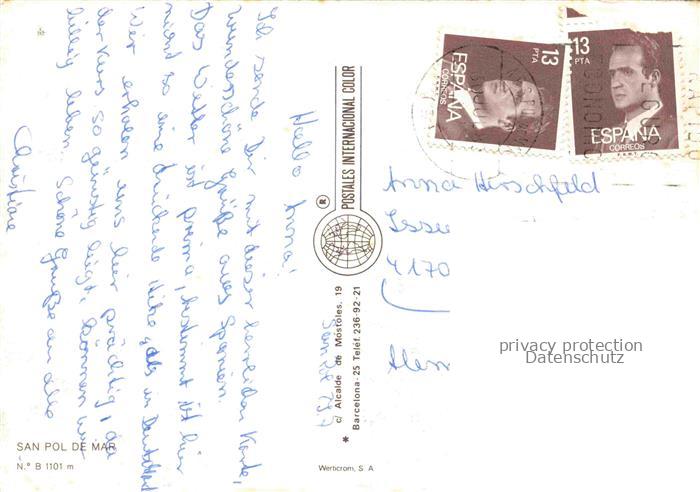 Hallo Anna!
Ich sende Dir mit dieser herrlichen Karte,
wunderschöne Grüße aus Spanien.
Das Wetter ist prima, bestimmt ist hier
nicht so eine drückende Hitze, als in Deutschland
Wir erholen uns hier prächtig, da
der Kurs so günstig liegt, können wir
billig leben. Schöne Grüße an alle
Christiane
SAN POL DE MAR
N.º B 1101 m
® POSTALES INTERNACIONAL COLOR
c/ Alcalde de Móstoles, 19
* Barcelona - 25 Teléf. 236-92-21
Werbcrom, S A
ESPAÑA
CORREOS
13 PTA
13
PTA
ESPAÑA
CORREOS
F.N.M.T.
Anna Hirschfeld
4170
privacy protection
Datenschutz